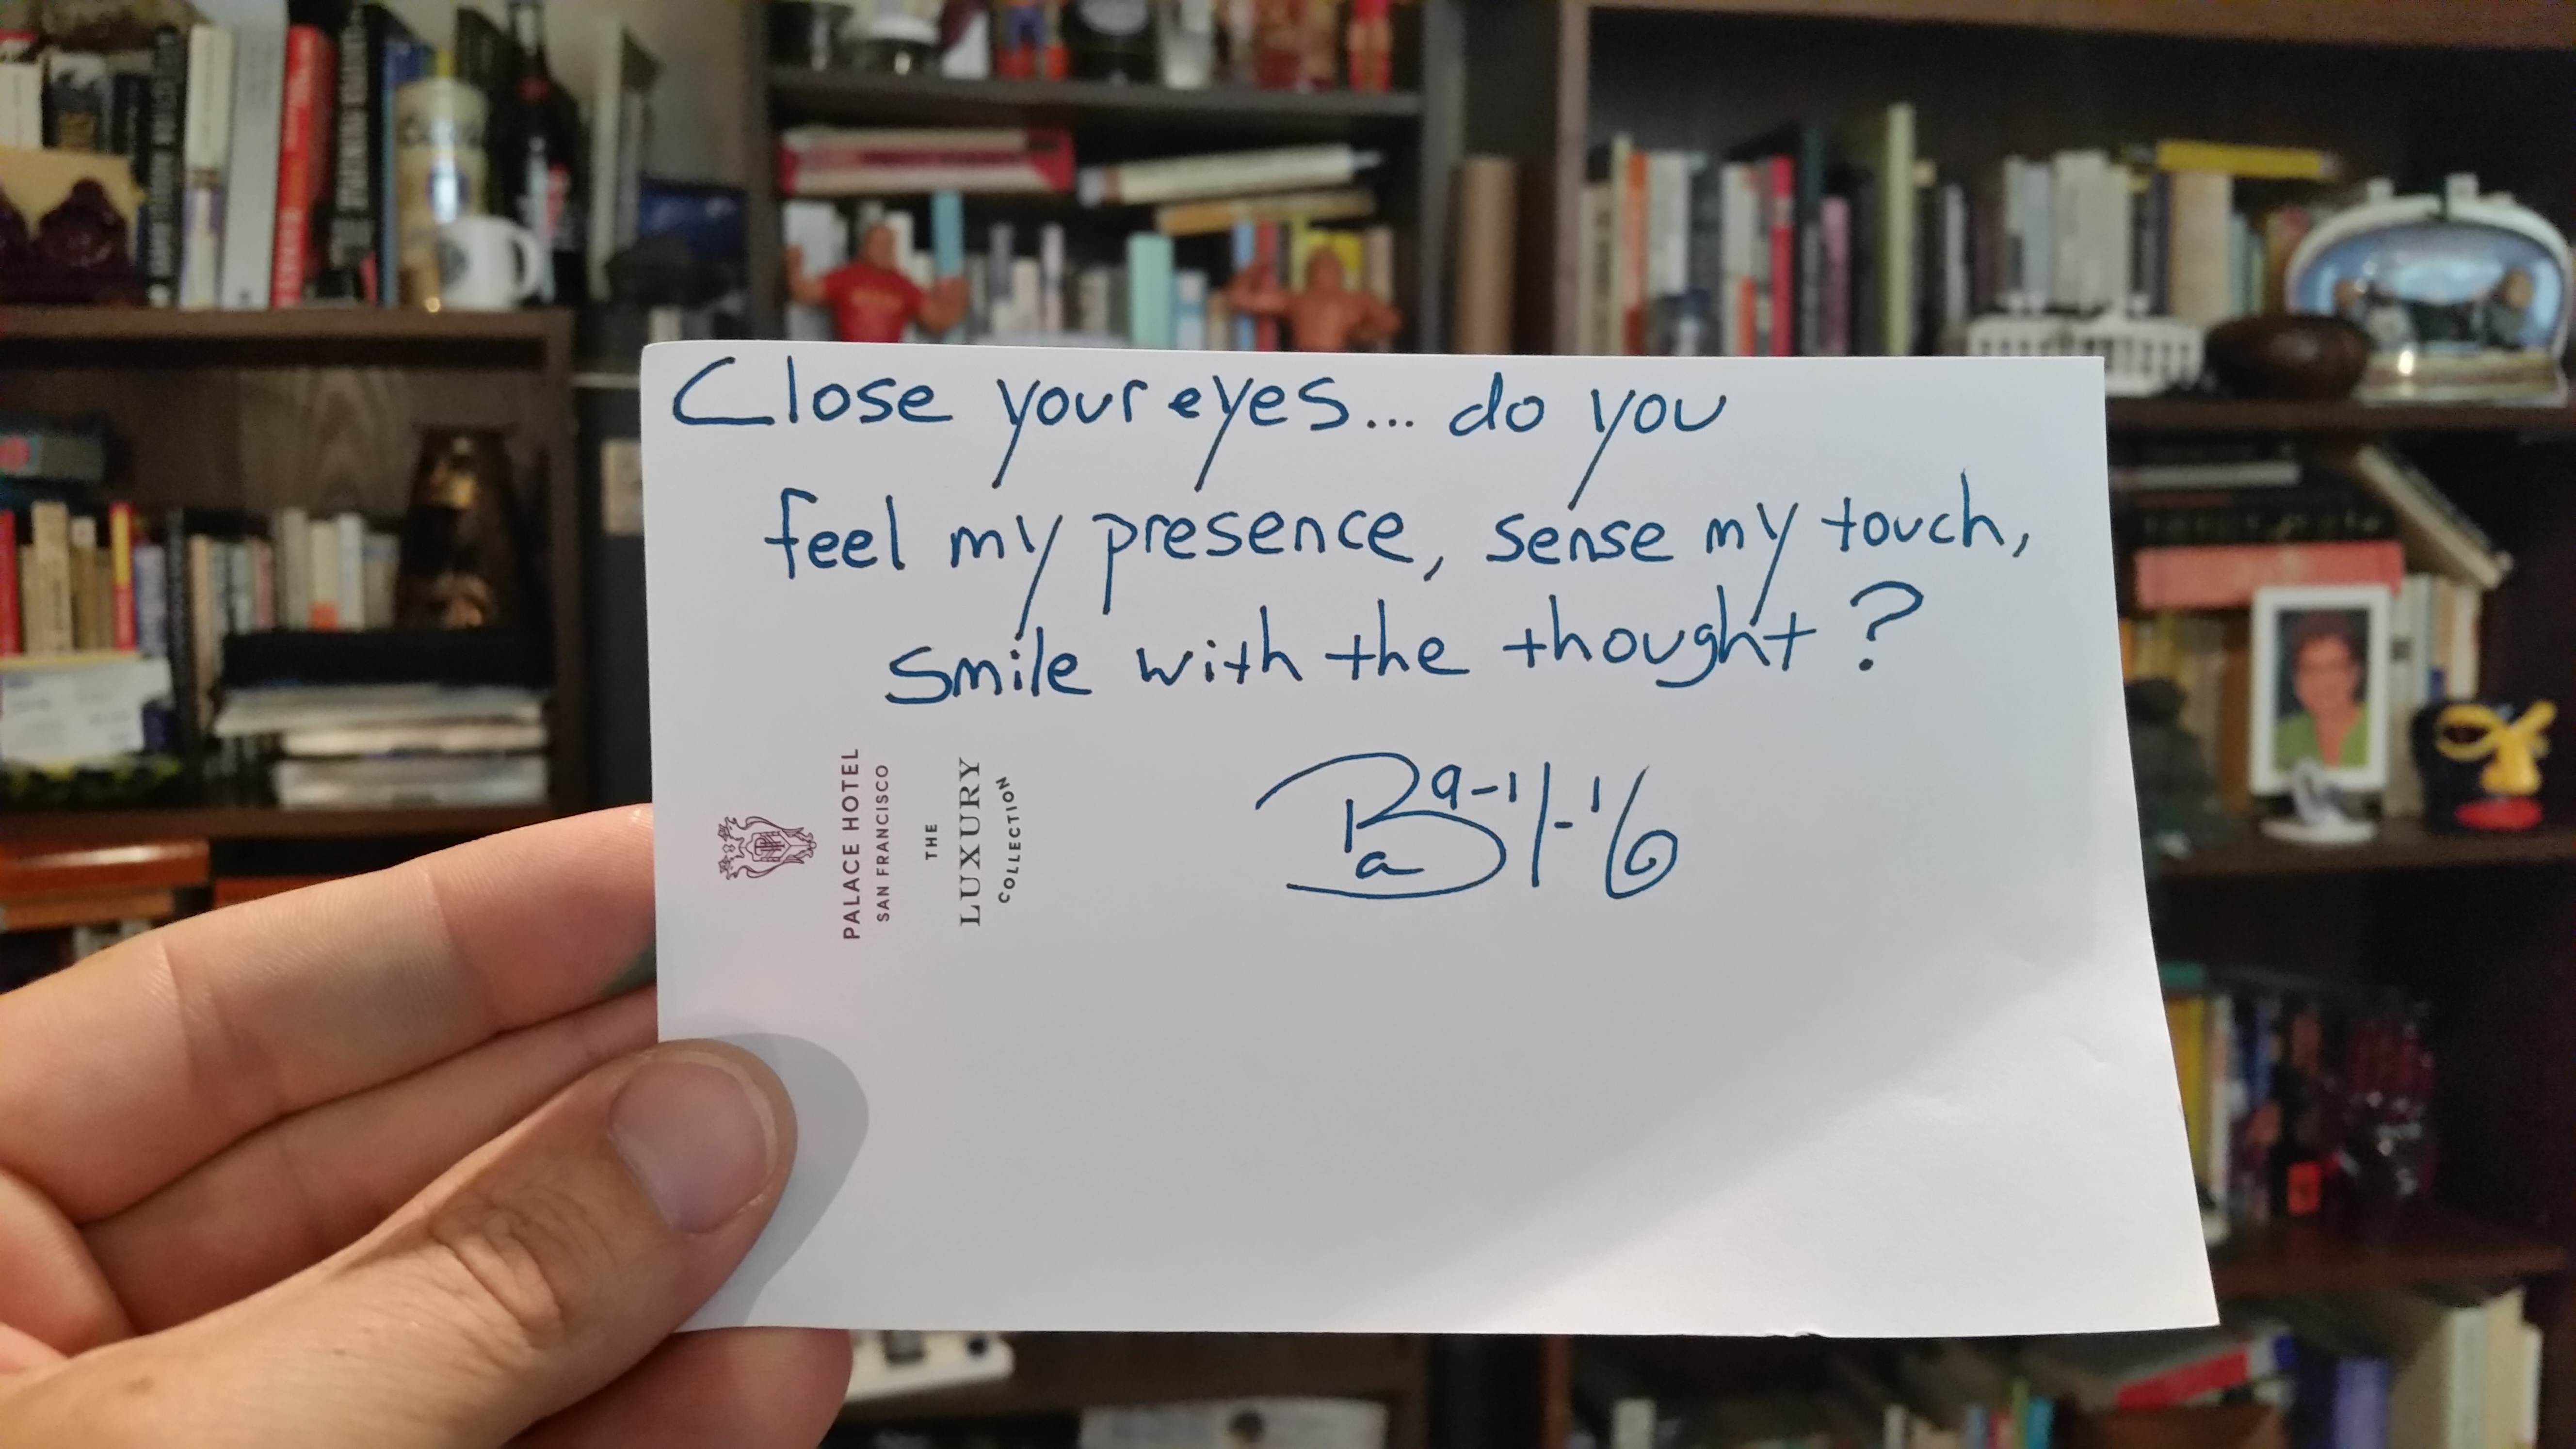 Close your eyes... do you
feel my presence, sense my touch,
smile with the thought?
PALACE HOTEL
SAN FRANCISCO
THE
LUXURY
COLLECTION